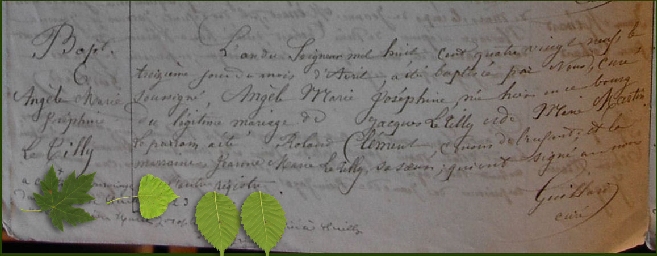 Bapt.
Angèle Marie
Joséphine
Le Tilly
L'an du Seigneur mil huit cent quatre vingt neuf le
treizième jour du mois d'Avril a été baptisée par Nous, Curé
soussigné Angèle Marie Joséphine, née hier en ce bourg
du légitime mariage de Jacques Le Tilly et de Marie Martin
Le parrain a été Roland Clément, cousin de l'enfant; et la
marraine Jeanne Marie Le Tilly, sa sœur, qui ont signé avec nous
registre
Guillard
curé